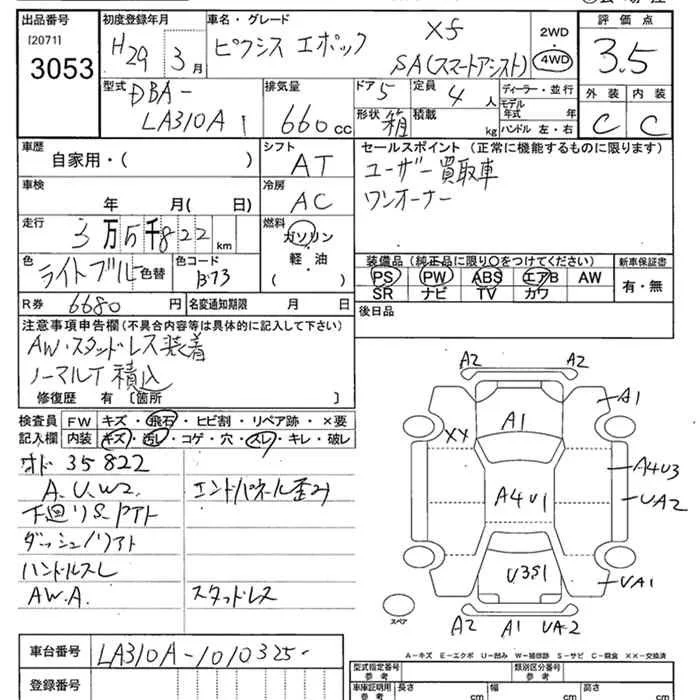 出品番号
[2071]
3053
初度登録年月
H29 3月
車名・グレード
ピクシス エポック Xf
SA(スマートアシスト)
2WD
・
4WD
評価点
3.5
外装 内装
C C
型式
DBA-
LA310A
排気量
660cc
ドア 5
定員 4人
形状 箱
積載 kg
ディーラー・並行
モデル
年式 年
ハンドル 左・右
車歴
自家用・( )
シフト
AT
セールスポイント(正常に機能するものに限ります)
ユーザー買取車
ワンオーナー
車検
年 月( 日)
冷房
AC
走行
3万5千822km
燃料
ガソリン
・
軽・油
( )
色
ライトブルー 色替
色コード
B73
装備品(純正品に限り○をつけてください)
PS PW ABS エアB AW
SR ナビ TV カワ
新車保証書
有・無
R券 6680円
名変通知期限 月 日
後日品
注意事項申告欄(不具合内容等は具体的に記入して下さい)
AW・スタッドレス装着
ノーマルT積込
修復歴 有[箇所 ]
検査員
記入欄
FW キズ・飛石・ヒビ割・リペア跡・×要
内装 キズ・汚レ・コゲ・穴・スレ・キレ・破レ
オド 35822
A.U.W2.
エンドパネル歪み
下廻りS.Pアト
ダッシュノリアト
ハンドルスレ
AW.A.
スタッドレス
A2 A2
A1
A1
XX
A4U3
A4U1
UA2
U3S1
UA1
スペア
A2 A1 UA2
車台番号 LA310A-1010325-
登録番号
A-キズ E-エクボ U-凹み W-補修跡 S-サビ C-腐食 ××-交換済
型式指定番号
参考
類別区分番号
参考
車庫証明用
参考
長さ cm
幅 cm
高さ cm